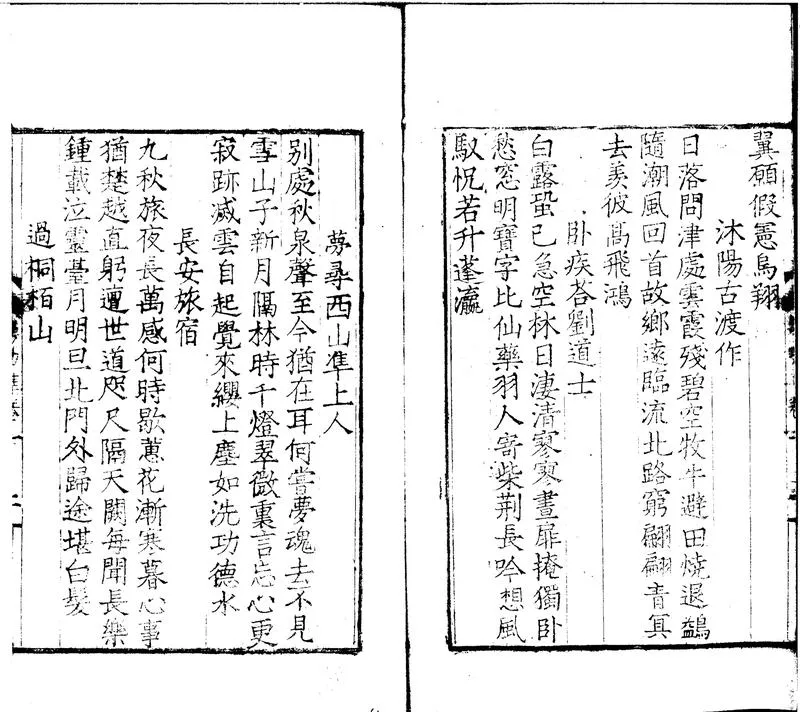 翼願假憲鳥翔
沐陽古渡作
日落問津處雲霞殘碧空牧牛避田燒退鷁
隨潮風回首故鄉遠臨流北路窮翩翩青冥
去羨彼高飛鴻
卧疾荅劉道士
白露蛩已急空林日淒清寥寥晝扉掩獨卧
愁窓明寶字比仙藥羽人寄柴荆長吟想風
馭怳若升蓬瀛
夢尋西山準上人
别處秋泉聲至今猶在耳何嘗夢魂去不見
雪山子新月隔林時千燈翠微裏言忘心更
寂跡滅雲自起覺來纓上塵如洗功德水
長安旅宿
九秋旅夜長萬感何時歇蕙花漸寒暮心事
猶楚越直躬遭世道咫尺隔天闕每聞長樂
鍾載泣靈臺月明旦北門外歸途堪白髮
過桐栢山